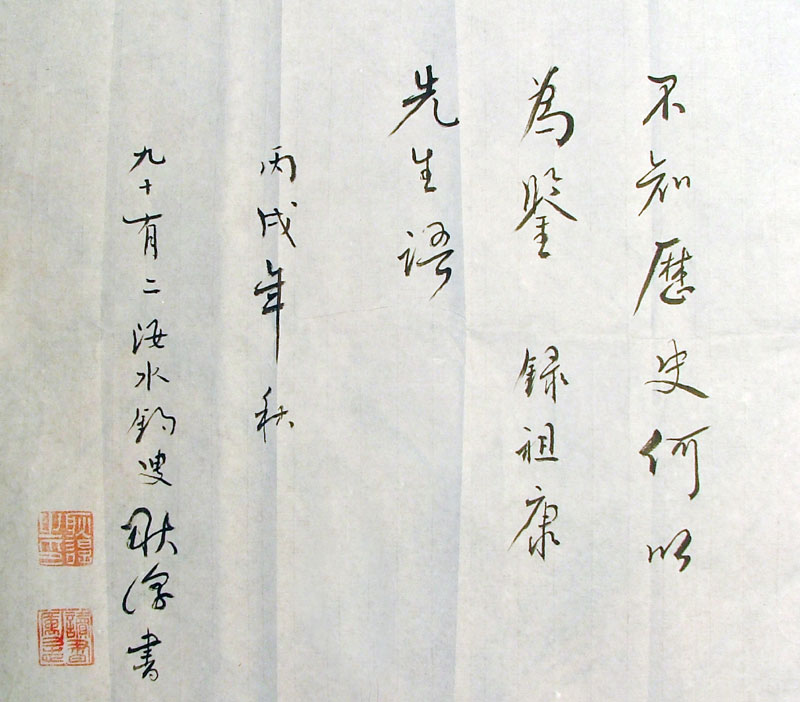 不知歷史何以
為鑒 録祖康
先生語
丙戌年秋
九十有二海水鈞叟耿濬書